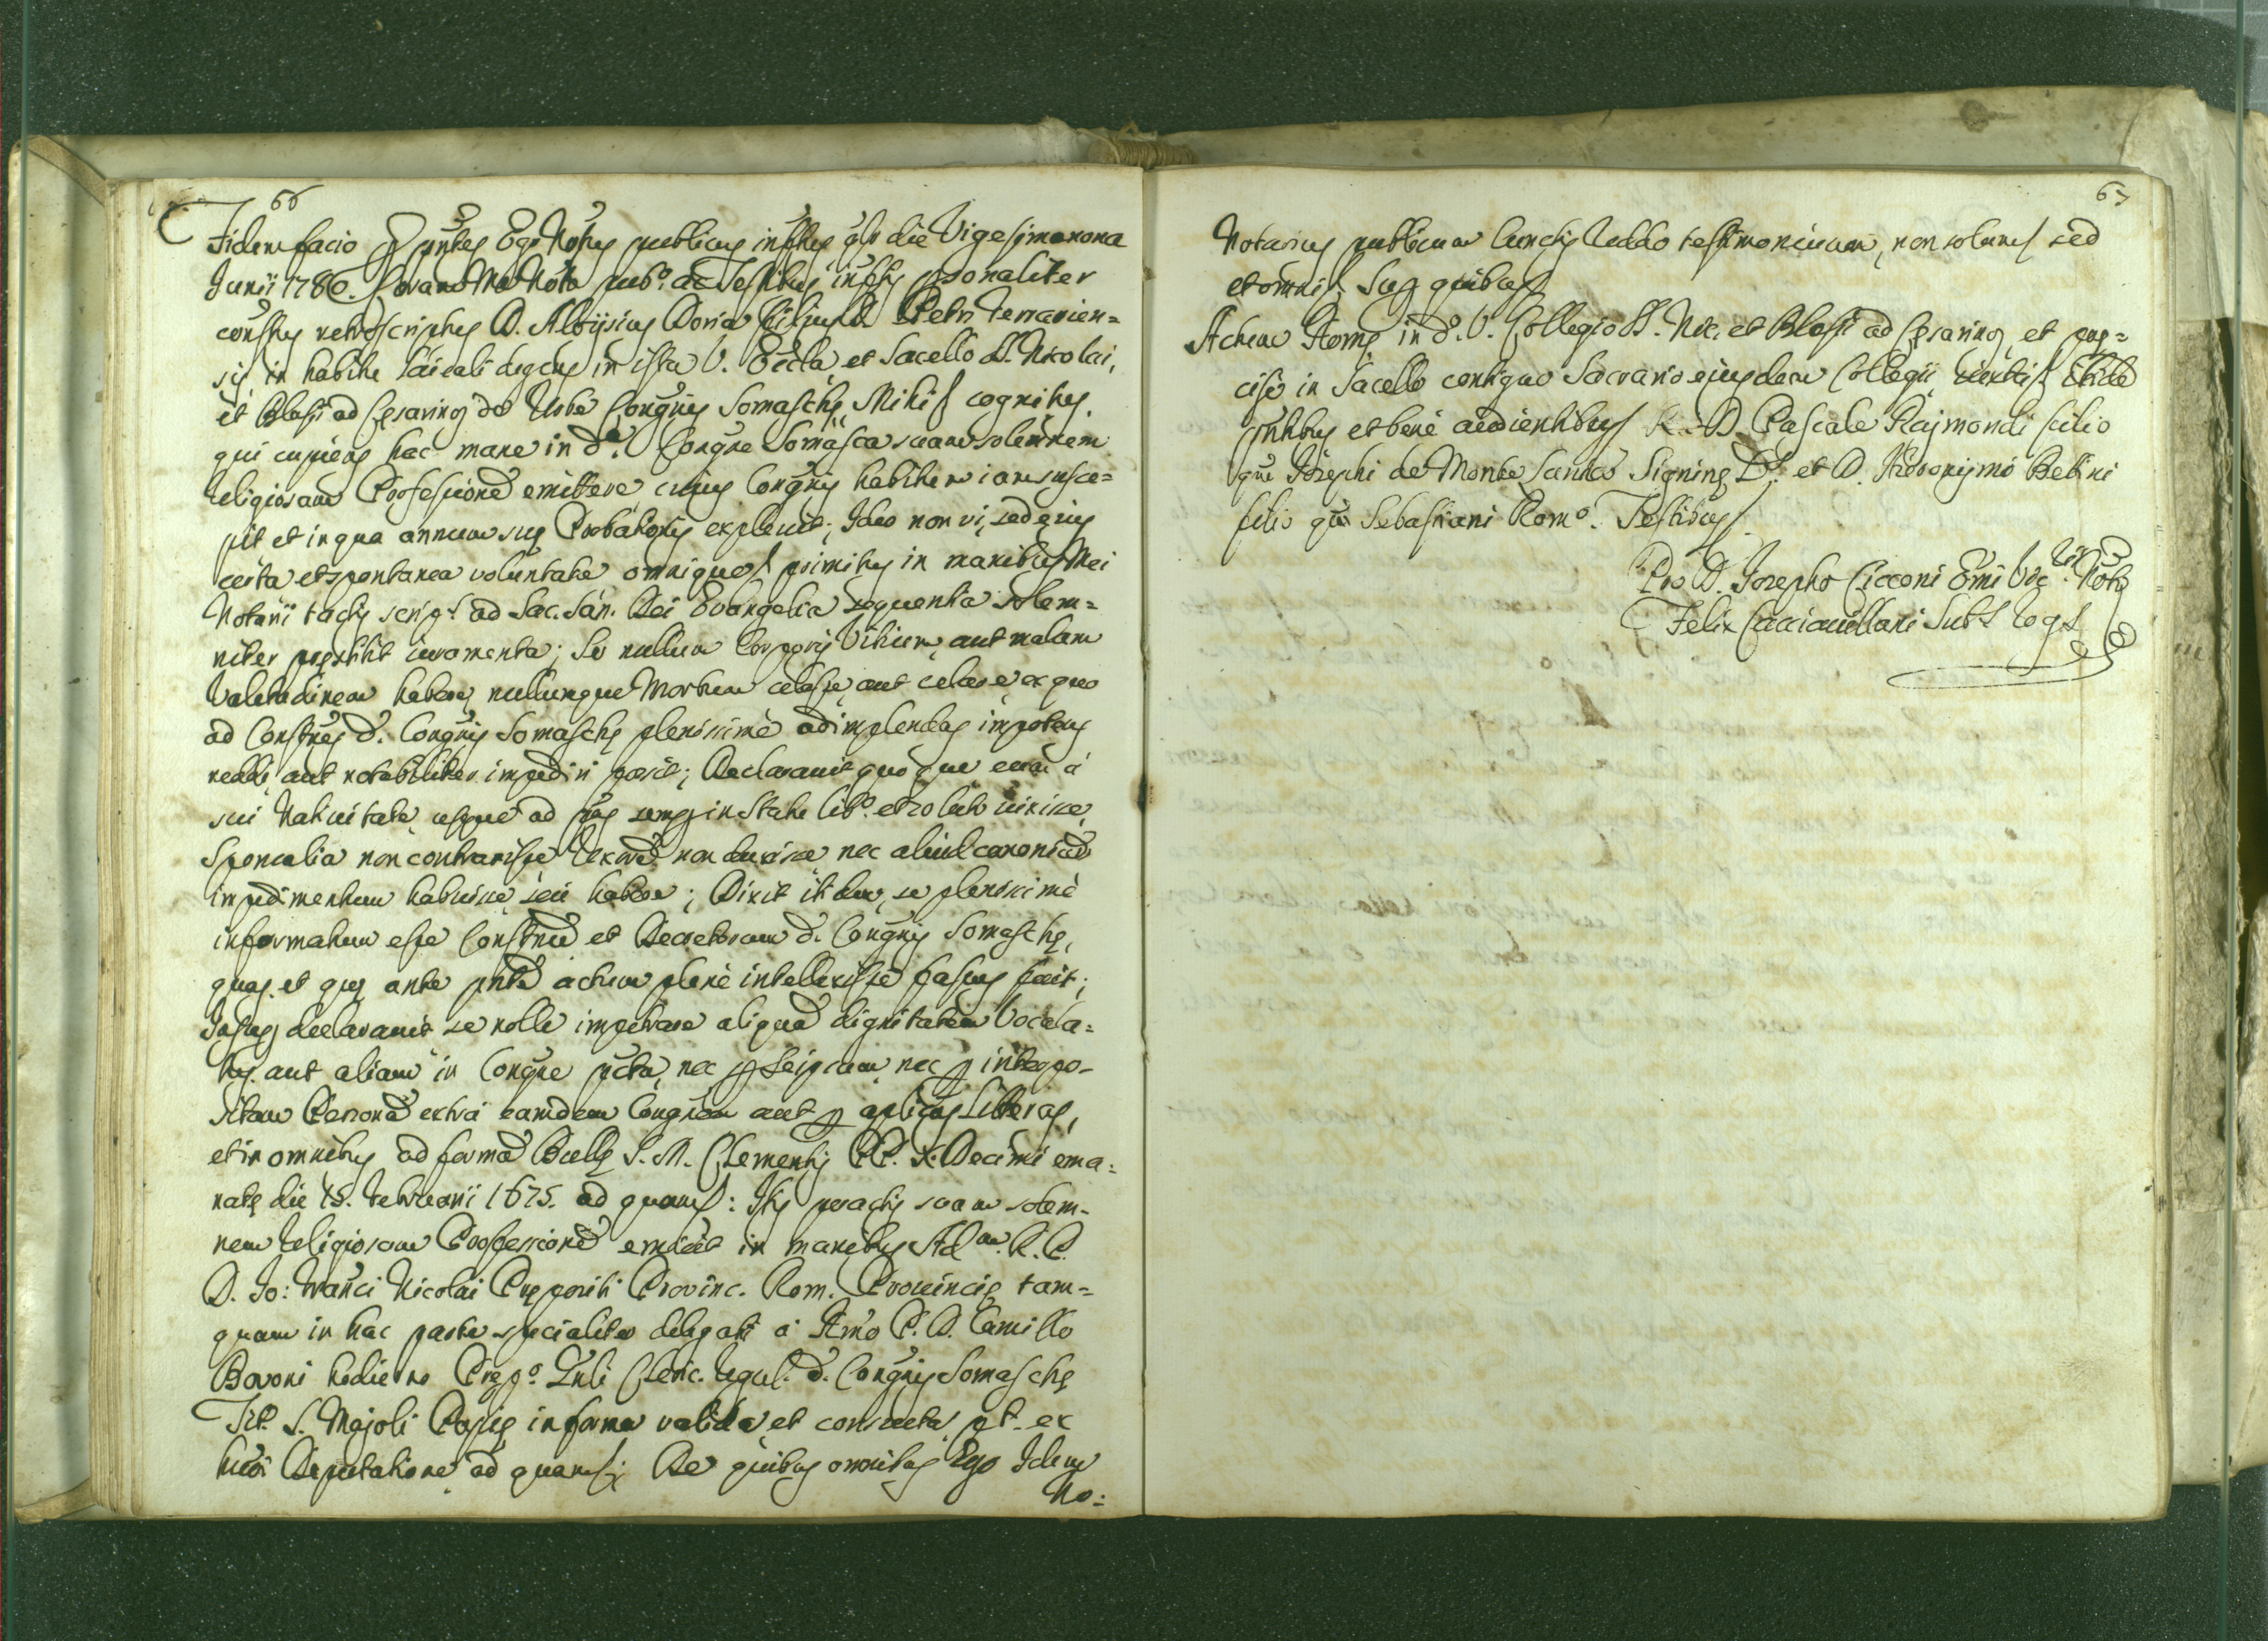 66
Fidem facio p pntes Ego Nors publicus infrs qd die Vigesimanona
Junii 1780. Coram Me Noto pubo ac Testibus infis psonaliter
constus retroscriptus D. Aloysius Doria filius D. Petri Terracien=
sis in habitu laicali degens in ista V. Eccla et Sacello SS. Nicolai,
et Blasii ad Cesarinos de Urbe Congnis Somasche Mihi cognitus,
qui cupiens hac mane in da. Congne Somasca suam solemnem
religiosam Professione emittere cujus Congnis habitum iam susce=
pit et in qua annum sue Probationis explevit; Ideo non vi, sed ejus
certa et spontanea voluntate omnique primitus in manibus Mei
Notarii tactis scrip. ad Sac. San. Dei Evangelia sequentia solem=
niter prestitit iuramenta; Se nullum Corporis Vitium, aut malam
Valetudinem habere, nullumque Morbum celasse, aut celare ex quo
ad Constnes d. Congnis Somasche plenissimè adimplendas impotens
reddi, aut notabiliter impediri possit; Declaravit quoque eum à
sui Nativitate usque ad pns semp in Statu libo. et soluto vixisse,
Sponsalia non contraxisse Uxore non duxisse, nec aliud canonicu
impedimentum habuisse, seu habere; Dixit itidem, se plenissimè
informatum esse Constnu et Decretorum d. Congnis Somasche,
quas, et que ante pnte actum plenè intellexisse fassus fuit;
Insup declaravit se nolle impetrare aliqua dignitatem Vocala=
tus, aut aliam in Congne pcta, nec p seipsum, nec p interpo-
sitam Persona extrà eamdem Congnem aut p aplicas Literas,
et in omnibus ad forma Bulle S. M. Clementis PP. X: Decimi ema=
nate die 15. Februarii 1675. ad quam: Itis peractis suam solem-
nem religiosam Professione emisit in manibus Adm. R. P.
D. Jo: Franci Nicolai Prepositi Provinc. Rom. Provincie tam=
quam in hac parte specialiter delegati à Rmo P. D. Camillo
Bovoni hodierno Prepo. Gnli Cleric. regul. d. Congnis Somasche
Tit. S. Majoli Papie in forma valida, et consueta, pt. ex
Deputatione ad quam; De quibus omnibus Ego Idem
No=
67
Notarius publicum cunctis reddo testimonium, non solum sed
et omni Sup quibus
Actum Rome in d. V. Collegio SS. Nic. et Blasii ad Cesarinos, et pre=
cise in Sacello contiguo Sacrario ejusdem Collegii ibide
pntibus et benè audientibus R. D. Pascale Rajmondi filio
qm Josephi de Monte Sancto et D. Hieronymo Belini
filio qm Sebastiani Romo. Testibus
Pro D. Josepho Cicconi Emi Vic. Noto
Felix Cacciavillani Subs rogs